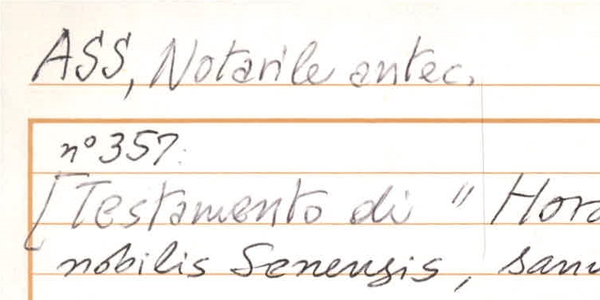 ASS, Notarile antec.
n° 357.
[Testamento di "Hora
nobilis Senensis, sanu